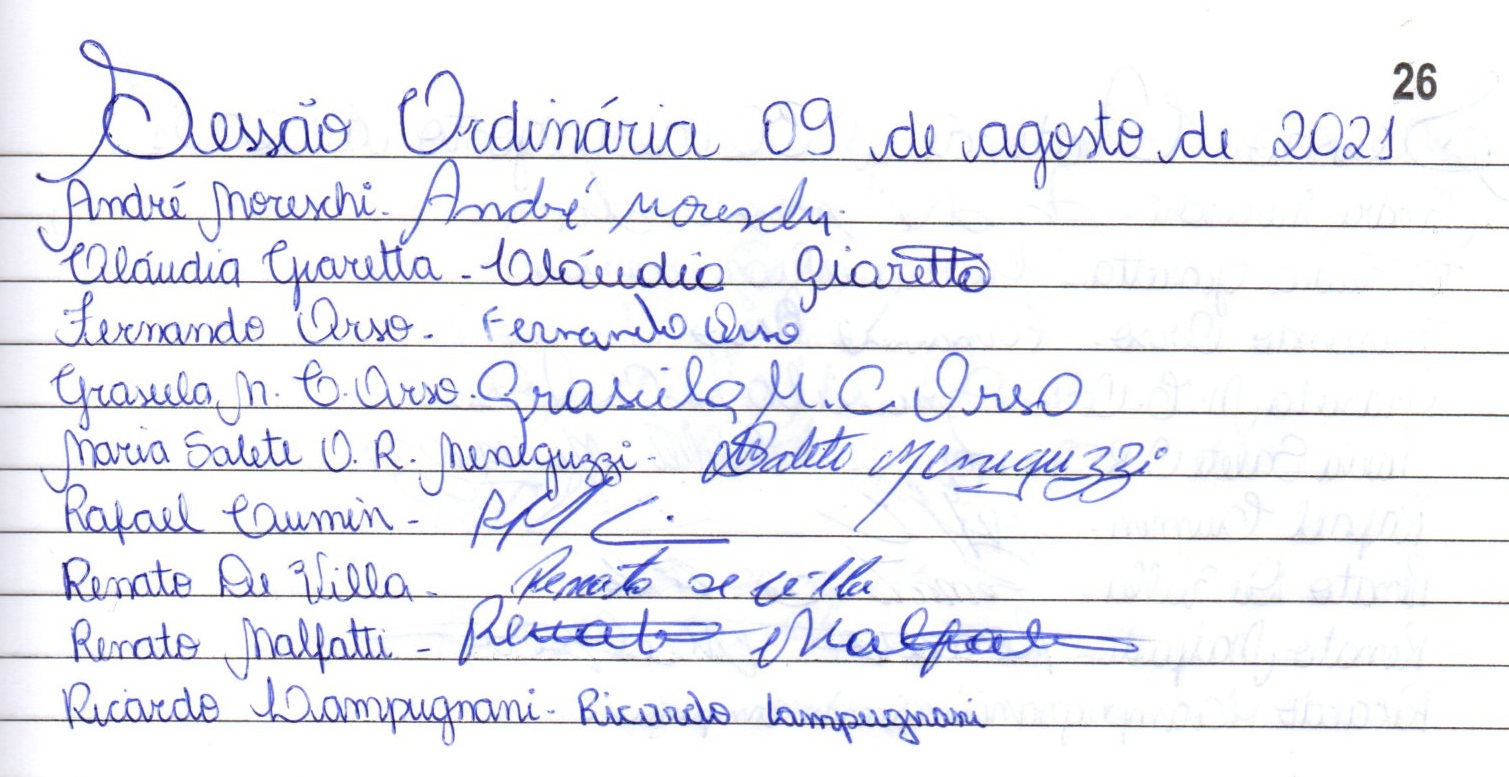 26
Sessão Ordinária 09 de agosto de 2021
André Moreschi. André Moreschi
Cláudia Giaretta - Cláudia Giaretta
Fernando Orso. Fernando Orso
Grasiela M. C. Orso. Grasiela M. C. Orso
Maria Salete O. R. Meneguzzi - Salete Meneguzzi
Rafael Cumin -
Renato De Villa - Renato de Villa
Renato Malfatti - Renato Malfatti
Ricardo Lampugnani - Ricardo Lampugnani